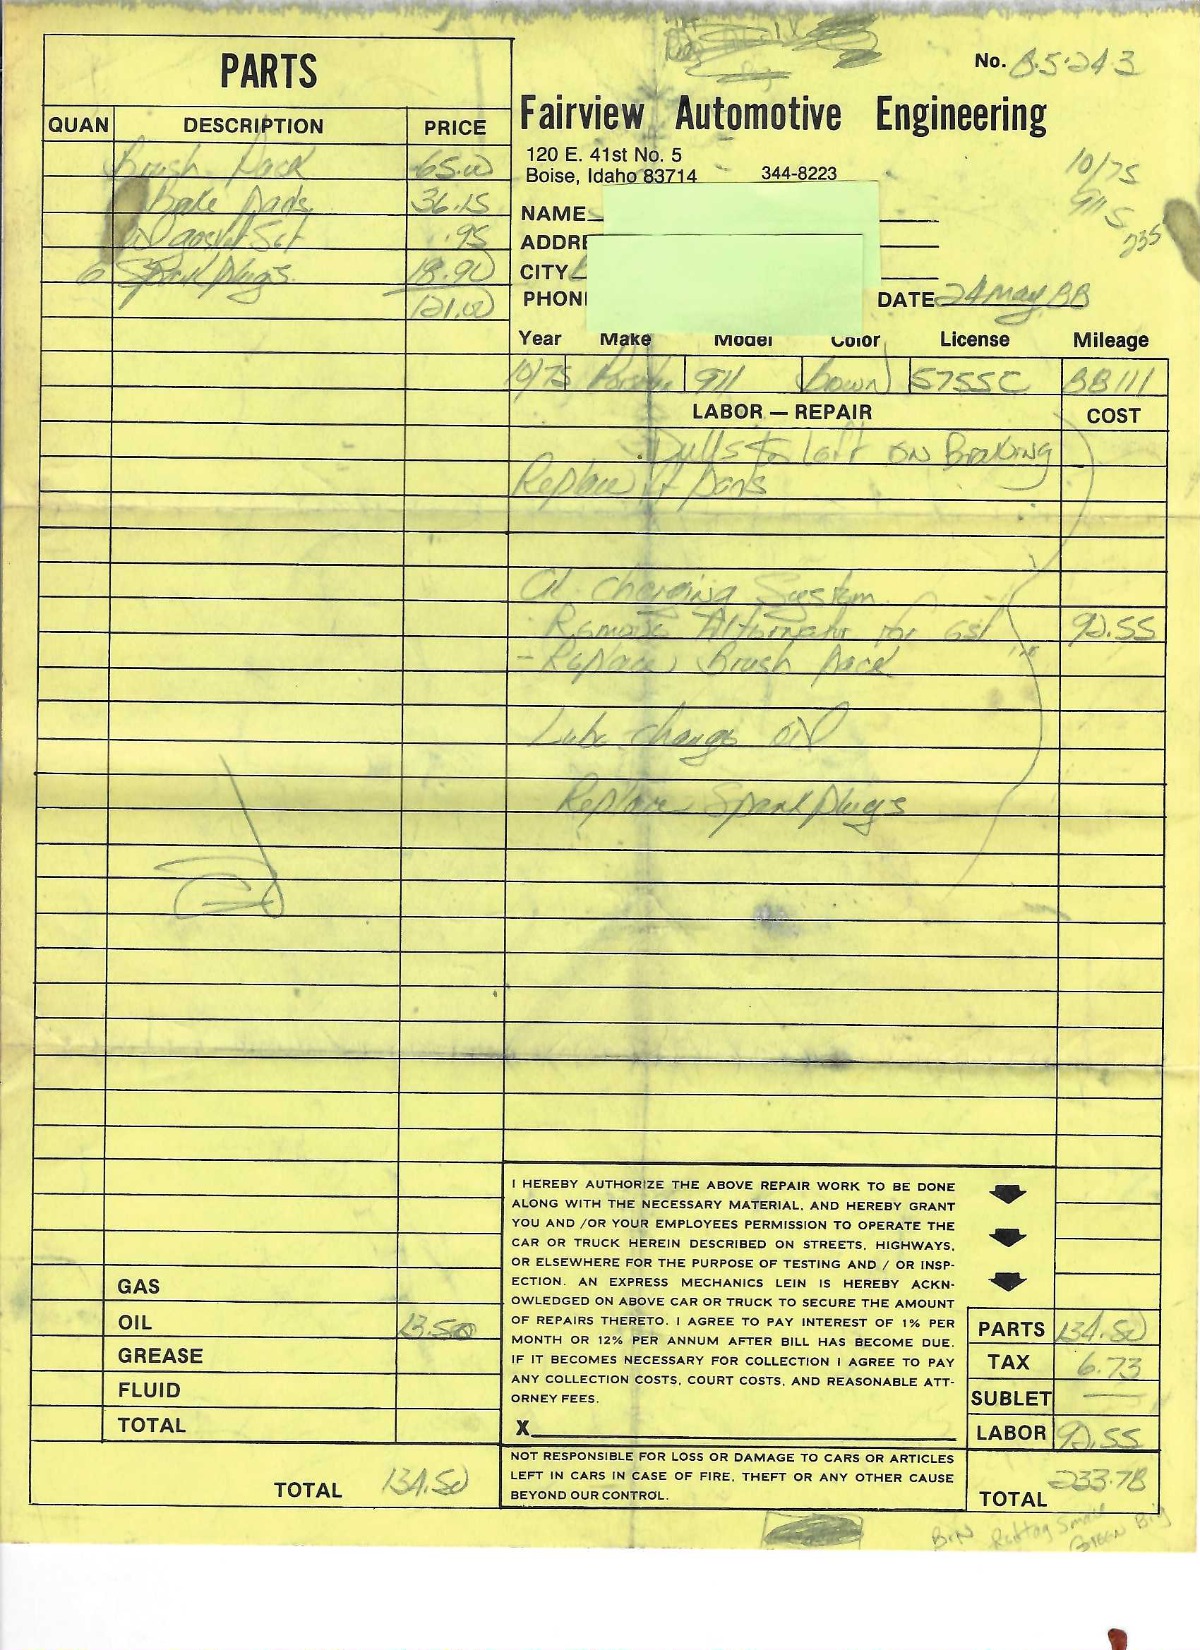 No. 8.5.243
PARTS
QUAN DESCRIPTION PRICE
Brush Pack 65.00
Brake Pads 36.15
Oil gasket Set .95
6 Spark plugs 18.90
121.00
Fairview Automotive Engineering
120 E. 41st No. 5
Boise, Idaho 83714 344-8223
10/75
911 S
235
NAME
ADDRE
CITY
PHON
DATE 24 May 88
Year Make Model Color License Mileage
10/75 Porsche 911 Brown 5755C 88111
LABOR — REPAIR COST
Pulls to left on Braking
Replace ft pads
Ck charging System
Remove Alternator for test 92.55
- Replace Brush Pack
Lube change oil
Replace Spark plugs
I HEREBY AUTHORIZE THE ABOVE REPAIR WORK TO BE DONE
ALONG WITH THE NECESSARY MATERIAL, AND HEREBY GRANT
YOU AND /OR YOUR EMPLOYEES PERMISSION TO OPERATE THE
CAR OR TRUCK HEREIN DESCRIBED ON STREETS, HIGHWAYS,
OR ELSEWHERE FOR THE PURPOSE OF TESTING AND / OR INSP-
ECTION. AN EXPRESS MECHANICS LEIN IS HEREBY ACKN-
OWLEDGED ON ABOVE CAR OR TRUCK TO SECURE THE AMOUNT
OF REPAIRS THERETO. I AGREE TO PAY INTEREST OF 1% PER
MONTH OR 12% PER ANNUM AFTER BILL HAS BECOME DUE.
IF IT BECOMES NECESSARY FOR COLLECTION I AGREE TO PAY
ANY COLLECTION COSTS, COURT COSTS, AND REASONABLE ATT-
ORNEY FEES.
X
NOT RESPONSIBLE FOR LOSS OR DAMAGE TO CARS OR ARTICLES
LEFT IN CARS IN CASE OF FIRE, THEFT OR ANY OTHER CAUSE
BEYOND OUR CONTROL.
GAS
OIL 13.50
GREASE
FLUID
TOTAL
TOTAL 134.50
PARTS 134.50
TAX 6.73
SUBLET —
LABOR 92.55
TOTAL 233.78
Small
Green Big